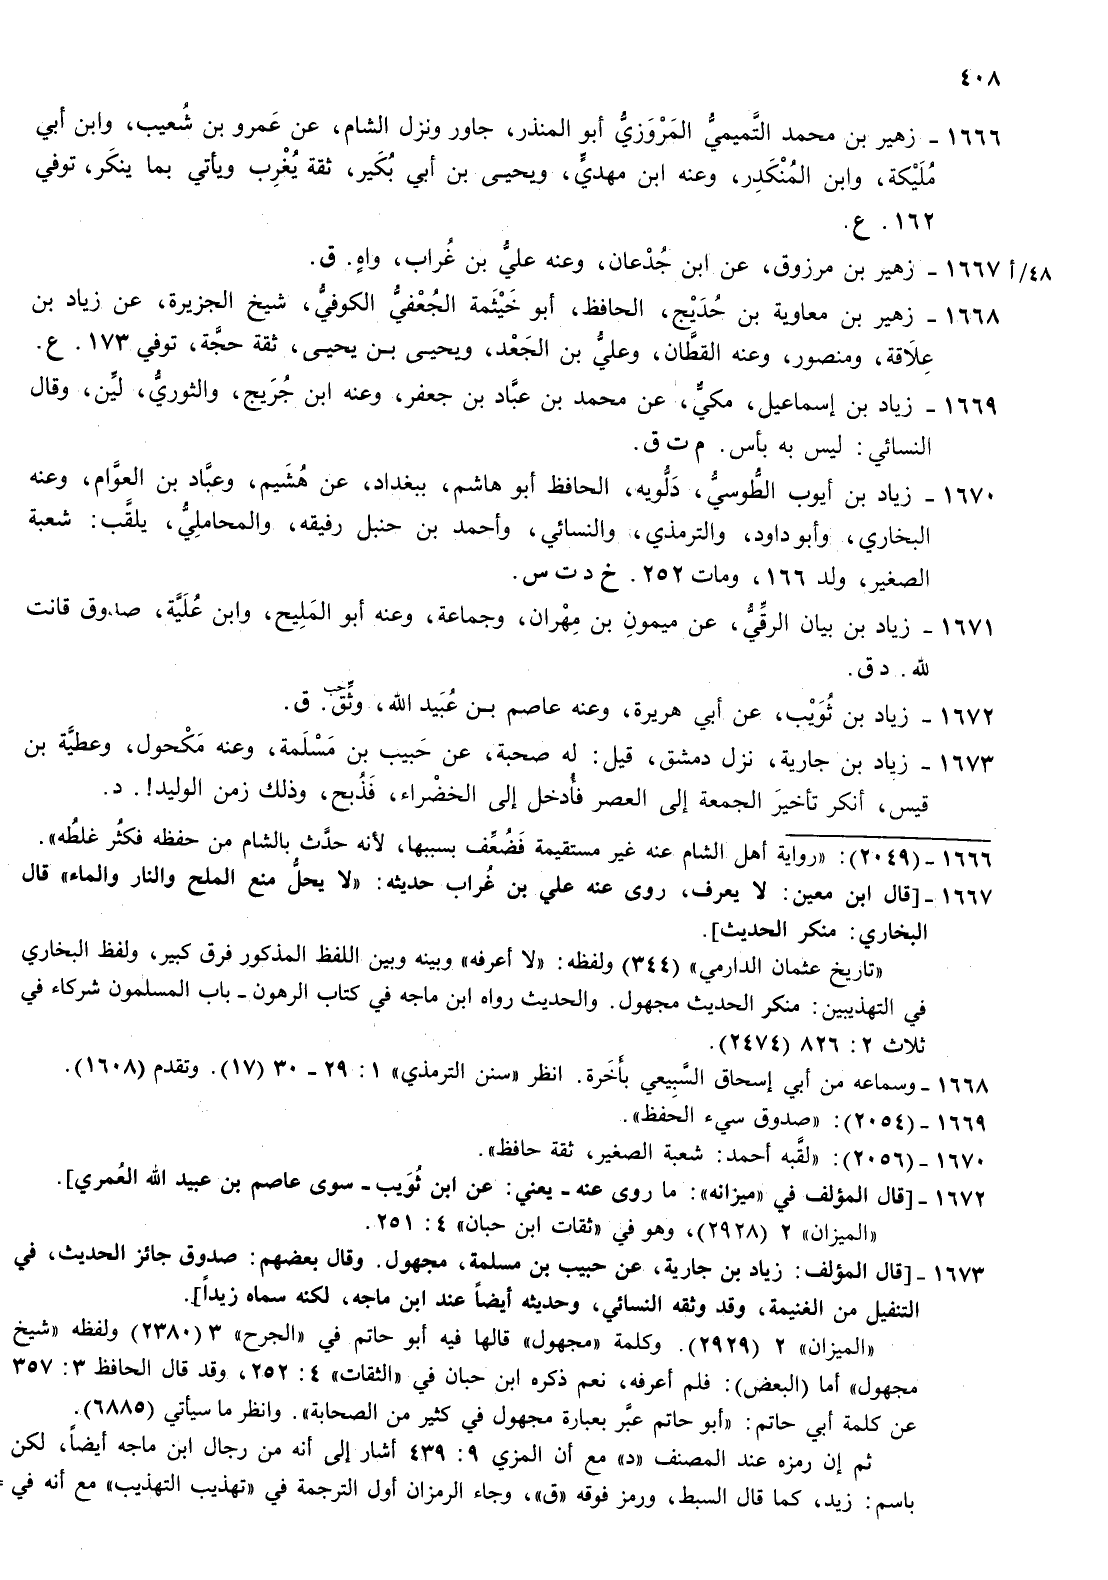 ٤٠٨
١٦٦٦ ـ زهير بن محمد التَّميميُّ المَرْوَزيُّ أبو المنذر، جاور ونزل الشام، عن عَمرو بن شُعيب، وابن أبي
مُلَيْكة، وابن المُنْكَدِر، وعنه ابن مهديٍّ، ويحيى بن أبي بُكَير، ثقة يُغْرِب ويأتي بما ينكَر، توفي
١٦٢. ع.
٤٨/أ ١٦٦٧ ـ زهير بن مرزوق، عن ابن جُدْعان، وعنه عليُّ بن غُراب، واهٍ. ق.
١٦٦٨ ـ زهير بن معاوية بن حُدَيْج، الحافظ، أبو خَيْثَمة الجُعْفيُّ الكوفيُّ، شيخ الجزيرة، عن زياد بن
عِلَاقة، ومنصور، وعنه القطَّان، وعليُّ بن الجَعْد، ويحيى بن يحيى، ثقة حجَّة، توفي ١٧٣. ع.
١٦٦٩ ـ زياد بن إسماعيل، مكيٌّ، عن محمد بن عبَّاد بن جعفر، وعنه ابن جُرَيج، والثوريُّ، ليِّن، وقال
النسائي: ليس به بأس. م ت ق.
١٦٧٠ ـ زياد بن أيوب الطُّوسيُّ، دَلُّويه، الحافظ أبو هاشم، ببغداد، عن هُشَيم، وعبَّاد بن العوَّام، وعنه
البخاري، وأبو داود، والترمذي، والنسائي، وأحمد بن حنبل رفيقه، والمحامليُّ، يلقَّب: شعبة
الصغير، ولد ١٦٦، ومات ٢٥٢. خ د ت س.
١٦٧١ ـ زياد بن بيان الرقِّيُّ، عن ميمونِ بن مِهْران، وجماعة، وعنه أبو المَلِيح، وابن عُلَيَّة، صدوق قانت
لله. د ق.
١٦٧٢ ـ زياد بن ثُوَيْب، عن أبي هريرة، وعنه عاصم بن عُبَيد الله، وثِّقَ حب. ق.
١٦٧٣ ـ زياد بن جارية، نزل دمشق، قيل: له صحبة، عن حَبيب بن مَسْلَمة، وعنه مَكْحول، وعطيَّة بن
قيس، أنكر تأخيرَ الجمعة إلى العصر فأُدخل إلى الخضْراء، فَذُبح، وذلك زمن الوليد!. د.
١٦٦٦ ـ (٢٠٤٩): «رواية أهل الشام عنه غير مستقيمة فَضُعِّف بسببها، لأنه حدَّث بالشام من حفظه فكثُر غلطُه».
١٦٦٧ ـ [قال ابن معين: لا يعرف، روى عنه علي بن غُراب حديثه: «لا يحلُّ منع الملح والنار والماء» قال
البخاري: منكر الحديث].
«تاريخ عثمان الدارمي» (٣٤٤) ولفظه: «لا أعرفه» وبينه وبين اللفظ المذكور فرق كبير، ولفظ البخاري
في التهذيبين: منكر الحديث مجهول. والحديث رواه ابن ماجه في كتاب الرهون ـ باب المسلمون شركاء في
ثلاث ٢: ٨٢٦ (٢٤٧٤).
١٦٦٨ ـ وسماعه من أبي إسحاق السَّبِيعي بأَخَرة. انظر «سنن الترمذي» ١: ٢٩ ـ ٣٠ (١٧). وتقدم (١٦٠٨).
١٦٦٩ ـ (٢٠٥٤): «صدوق سيء الحفظ».
١٦٧٠ ـ (٢٠٥٦): «لقَّبه أحمد: شعبة الصغير، ثقة حافظ».
١٦٧٢ ـ [قال المؤلف في «ميزانه»: ما روى عنه ـ يعني: عن ابن ثُوَيب ـ سوى عاصم بن عبيد الله العُمري].
«الميزان» ٢ (٢٩٢٨)، وهو في «ثقات ابن حبان» ٤: ٢٥١.
١٦٧٣ ـ [قال المؤلف: زياد بن جارية، عن حبيب بن مسلمة، مجهول. وقال بعضهم: صدوق جائز الحديث، في
التنفيل من الغنيمة، وقد وثقه النسائي، وحديثه أيضاً عند ابن ماجه، لكنه سماه زيداً].
«الميزان» ٢ (٢٩٢٩). وكلمة «مجهول» قالها فيه أبو حاتم في «الجرح» ٣ (٢٣٨٠) ولفظه «شيخ
مجهول» أما (البعض): فلم أعرفه، نعم ذكره ابن حبان في «الثقات» ٤: ٢٥٢، وقد قال الحافظ ٣: ٣٥٧
عن كلمة أبي حاتم: «أبو حاتم عبَّر بعبارة مجهول في كثير من الصحابة». وانظر ما سيأتي (٦٨٨٥).
ثم إن رمزه عند المصنف «د» مع أن المزي ٩: ٤٣٩ أشار إلى أنه من رجال ابن ماجه أيضاً، لكن
باسم: زيد، كما قال السبط، ورمز فوقه «ق»، وجاء الرمزان أول الترجمة في «تهذيب التهذيب» مع أنه في =